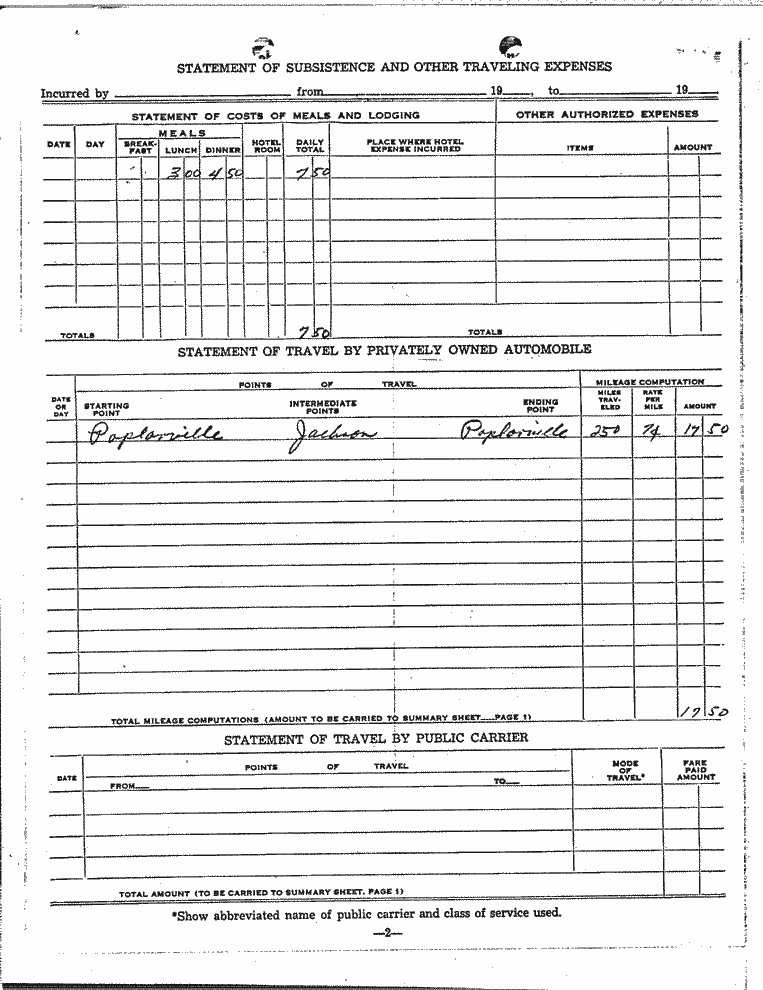 STATEMENT OF SUBSISTENCE AND OTHER TRAVELING EXPENSES
Incurred by from 19 , to 19
STATEMENT OF COSTS OF MEALS AND LODGING OTHER AUTHORIZED EXPENSES
DATE DAY MEALS BREAK-FAST LUNCH DINNER HOTEL ROOM DAILY TOTAL PLACE WHERE HOTEL EXPENSE INCURRED ITEMS AMOUNT
3 00 4 50 7 50
TOTALS 7 50 TOTALS
STATEMENT OF TRAVEL BY PRIVATELY OWNED AUTOMOBILE
POINTS OF TRAVEL MILEAGE COMPUTATION
DATE OR DAY STARTING POINT INTERMEDIATE POINTS ENDING POINT MILES TRAV-ELED RATE PER MILE AMOUNT
Poplarville Jackson Poplarville 250 7¢ 17 50
TOTAL MILEAGE COMPUTATIONS (AMOUNT TO BE CARRIED TO SUMMARY SHEET PAGE 1) 17 50
STATEMENT OF TRAVEL BY PUBLIC CARRIER
DATE POINTS OF TRAVEL MODE OF TRAVEL* FARE PAID AMOUNT
FROM TO
TOTAL AMOUNT (TO BE CARRIED TO SUMMARY SHEET, PAGE 1)
*Show abbreviated name of public carrier and class of service used.
—2—